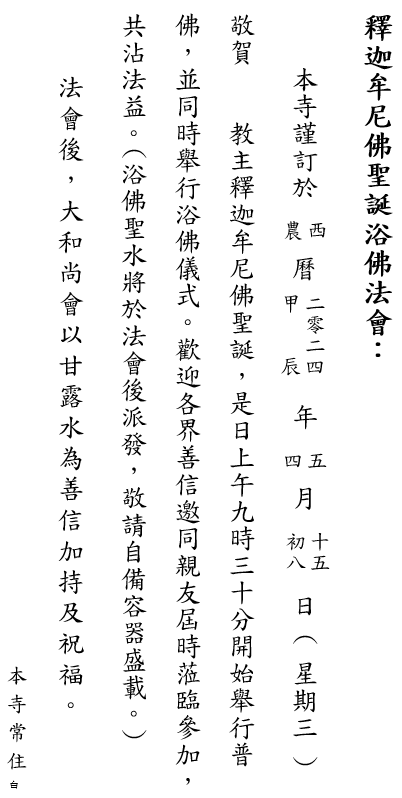 釋迦牟尼佛聖誕浴佛法會：
本寺謹訂於西農曆二零二四甲辰年五四月十五初八日（星期三）
敬賀　教主釋迦牟尼佛聖誕，是日上午九時三十分開始舉行普
佛，並同時舉行浴佛儀式。歡迎各界善信邀同親友屆時蒞臨參加，
共沾法益。（浴佛聖水將於法會後派發，敬請自備容器盛載。）
法會後，大和尚會以甘露水為善信加持及祝福。
本寺常住